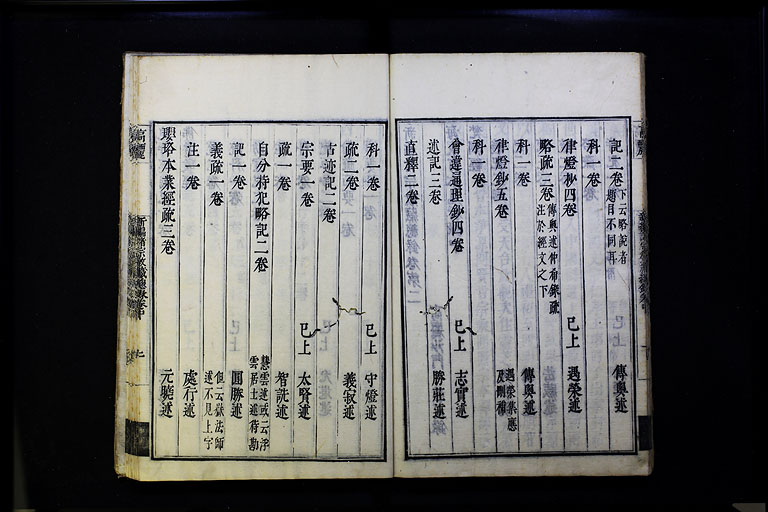 記二卷 下云略說者題目不同耳 傳奧述
科一卷
律燈抄四卷 已上 遇榮述
略疏三卷 傳奧述仲希錄疏注於經文之下
科一卷 傳奧述
律燈鈔五卷 遇榮集應及刪補
科一卷
會違通理鈔四卷 已上 志實述
述記三卷 勝莊述
直釋二卷
科一卷 已上 守燈述
疏二卷 義寂述
古迹記二卷
宗要一卷 已上 太賢述
疏一卷 智詵述
自分持犯略記二卷 慧雲述或云浮雲居士述待勘
記一卷 圓勝述
義疏一卷 但云嶽法師述不見上字
注一卷 處行述
瓔珞本業經疏三卷 元曉述
高麗
新編諸宗教藏總錄卷中